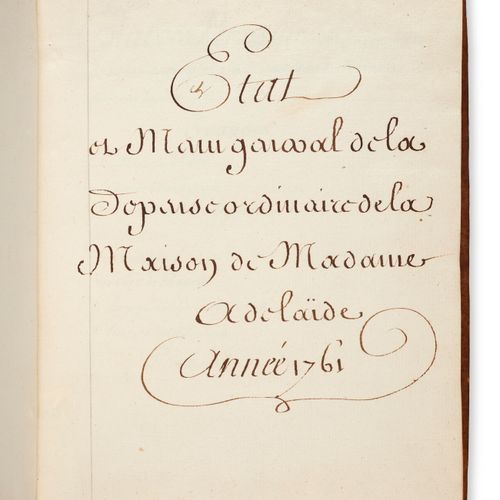 Etat
et Menu general de la
Depense ordinaire de la
Maison de Madame
Adelaïde
Année 1761